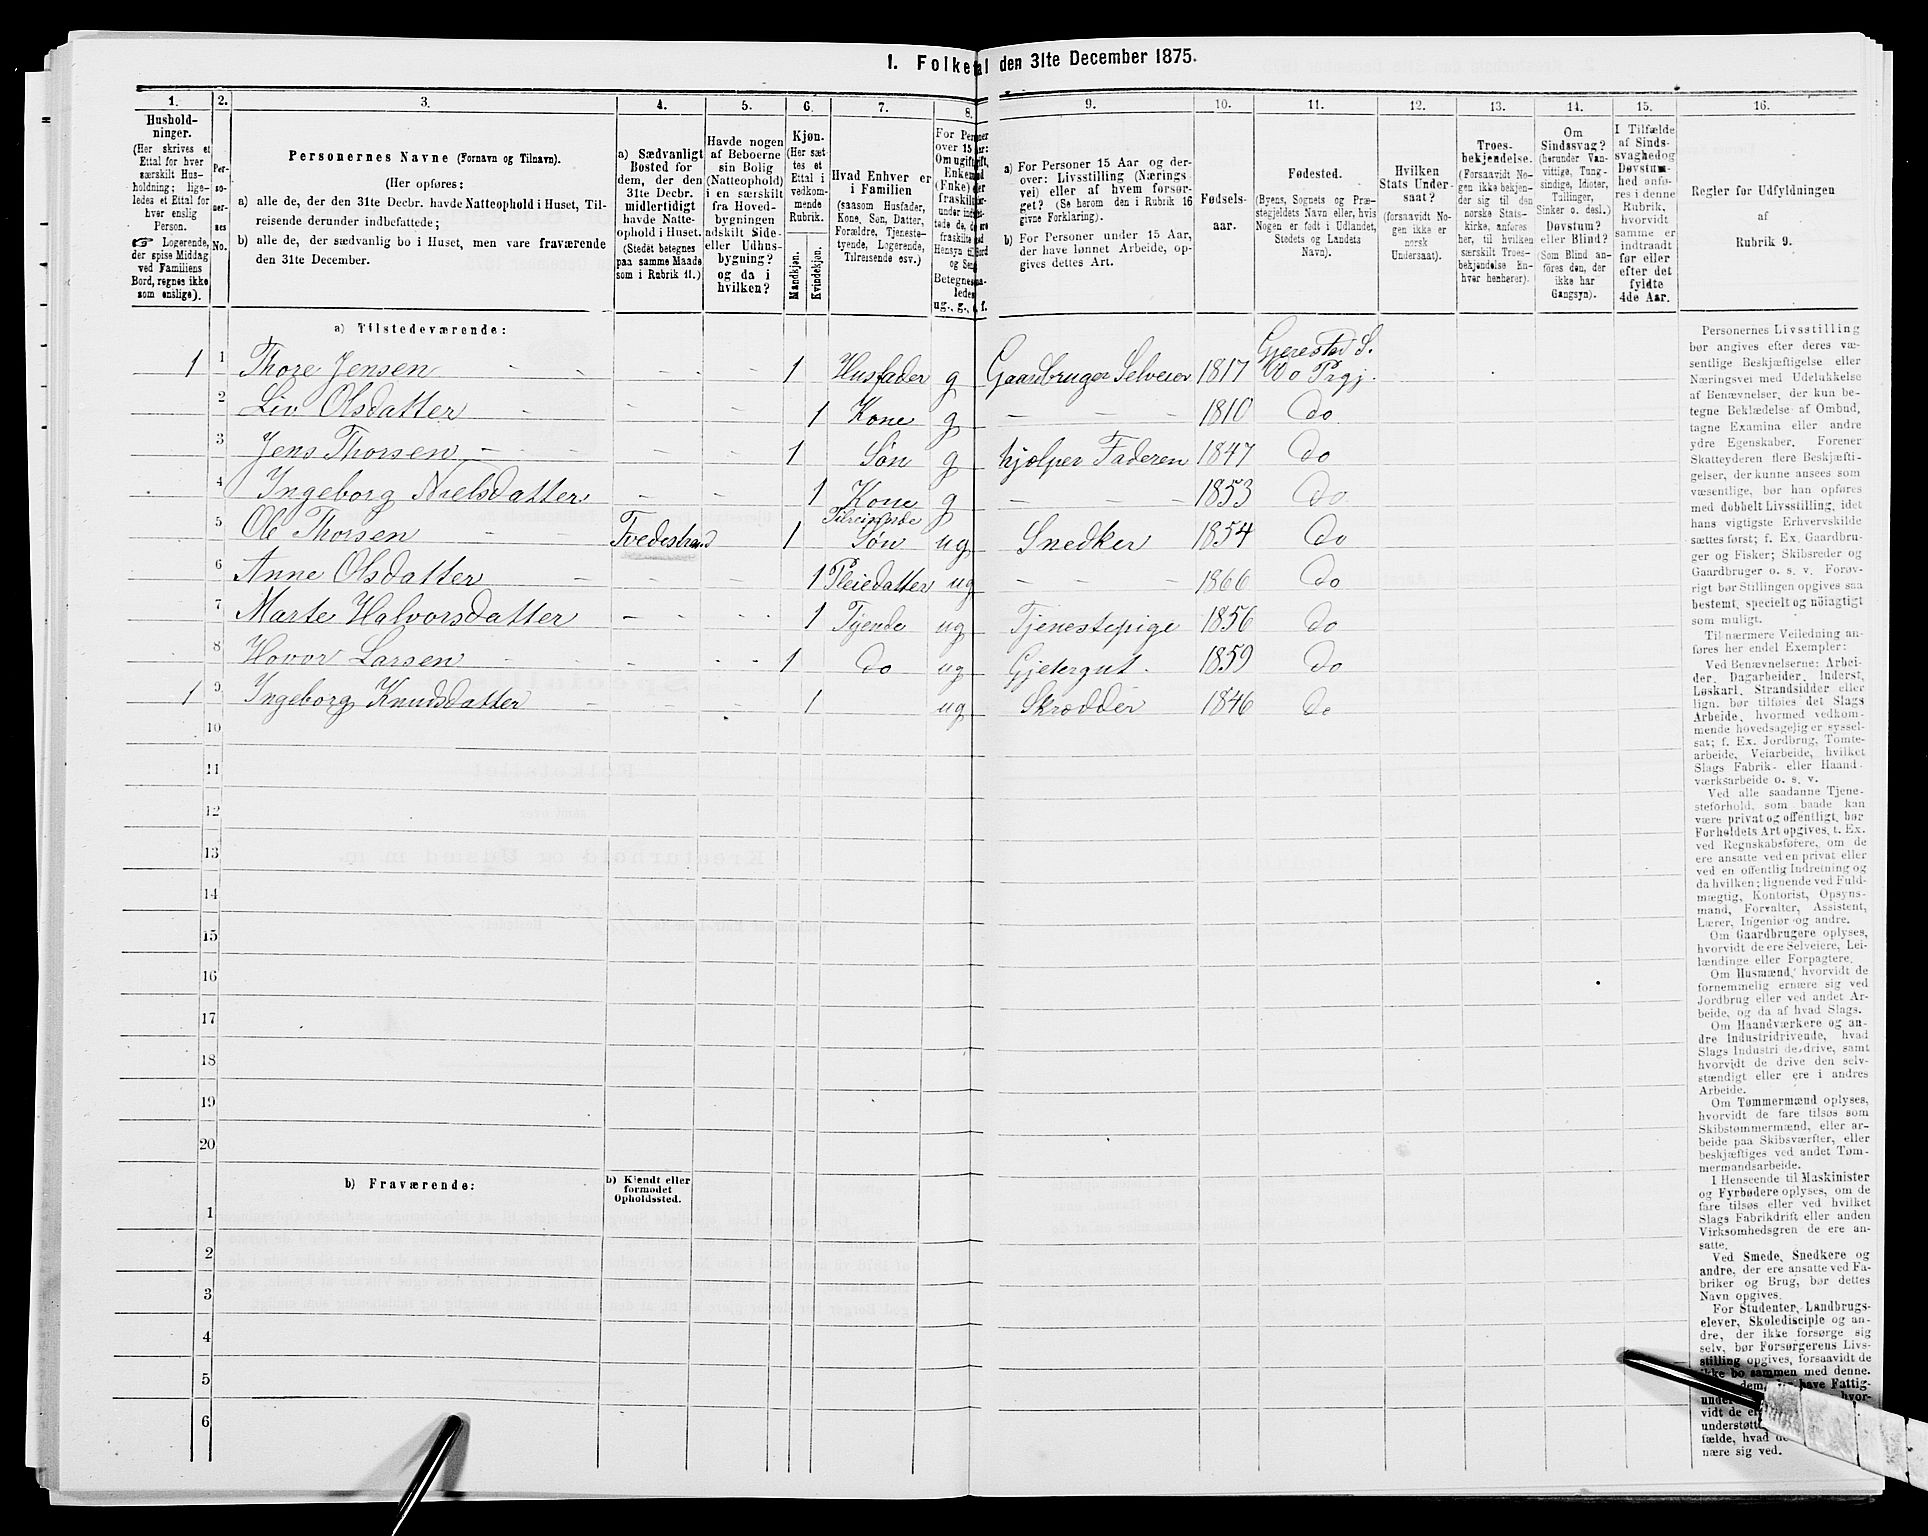 1. Folketal den 31te December 1875.
1.
2.
3.
4.
5.
6.
7.
8.
9.
10.
11.
12.
13.
14.
15.
16.
Hushold-
ninger.
(Her skrives et
Ettal for hver
særskilt Hus-
holdning; lige-
ledes et Ettal for
hver enslig
Person.
☞ Logerende,
der spise Middag
ved Familiens
Bord, regnes ikke
som enslige).
Per-
so-
ner-
nes
No.
Personernes Navne (Fornavn og Tilnavn).
(Her opføres:
a) alle de, der den 31te Decbr. havde Natteophold i Huset, Til-
reisende derunder indbefattede;
b) alle de, der sædvanlig bo i Huset, men vare fraværende
den 31te December.
a) Sædvanligt
Bosted for
dem, der den
31te Decbr.
midlertidigt
havde Natte-
ophold i Huset.
(Stedet betegnes
paa samme Maade
som i Rubrik 11.)
Havde nogen
af Beboerne
sin Bolig
(Natteophold)
i en særskilt
fra Hoved-
bygningen
adskilt Side-
eller Udhus-
bygning?
og da i
hvilken?
Kjøn.
(Her sæt-
tes et
Ettal i
vedkom-
mende
Rubrik.
Mandkjøn.
Kvindekjøn.
Hvad Enhver er
i Familien
(saasom Husfader,
Kone, Søn, Datter,
Forældre, Tjeneste-
tyende, Logerende,
Tilreisende osv.)
For Personer
over 15 Aar:
Om ugift, gift,
Betegnes
ug., g.,
a) For Personer 15 Aar og der-
over: Livsstilling (Nærings-
vei) eller af hvem forsør-
get? (Se herom den i Rubrik 16
givne Forklaring).
b) For Personer under 15 Aar,
der have lønnet Arbeide, op-
gives dettes Art.
Fødsels-
aar.
Fødested.
(Byens, Sognets og Præ-
stegjeldets Navn eller, hvis
Nogen er født i Udlandet,
Stedets og Landets
Navn).
Hvilken
Stats Under-
saat?
(forsaavidt No-
gen ikke er
norsk
Undersaat).
Troes-
bekjendelse.
(Forsaavidt No-
gen ikke bekjen-
der sig til den
norske Stats-
kirke, anføres
her, til hvilken
særskilt Troes-
bekjendelse En-
hver henhører).
Om
Sindssvag?
(herunder Van-
vittige, Tung-
sindige, Idioter,
Tullinger,
Sinker o. desl.)
Døvstum?
eller Blind?
(Som Blind an-
føres den, der
ikke har
Gangsyn).
I Tilfælde
af Sinds-
svaghed og
Døvstum-
hed anfø-
res i denne
Rubrik,
hvorvidt
samme er
indtraadt
før eller
efter det
fyldte
4de Aar.
Regler for Udfyldningen
af
Rubrik 9.
a) Tilstedeværende:
Gjerestad S.
1 1 Thore Jensen 1 Husfader g Gaardbruger Selveier 1817 Do Prgj.
2 Liv Olsdatter 1 Kone g 1810 Do
3 Jens Thorsen 1 Søn g hjælper Faderen 1847 Do
4 Ingeborg Nielsdatter 1 Kone g 1853 Do
Tilreisende
5 Ole Thorsen Tvedestrand 1 Søn ug Snedker 1854 Do
6 Anne Olsdatter 1 Pleiedatter ug 1866 Do
7 Marte Halvorsdatter 1 Tyende ug Tjenestepige 1856 Do
8 Hovor Larsen 1 do ug Gjetergut 1859 Do
1 9 Ingeborg Knudsdatter 1 ug Skrædder 1846 Do
10
11
12
13
14
15
16
17
18
19
20
b) Fraværende:
b) Kjendt eller
formodet
Opholdssted.
1
2
3
4
5
6
Personernes Livsstilling
bør angives efter deres væ-
sentlige Beskjæftigelse eller
Næringsvei med Udelukkelse
af Benævnelser, der kun be-
tegne Beklædelse af Ombud,
tagne Examina eller andre
ydre Egenskaber. Forener
Skatteyderen flere Beskjæfti-
gelser, der kunne ansees som
væsentlige, bør han opføres
med dobbelt Livsstilling, idet
hans vigtigste Erhvervskilde
sættes først; f. Ex. Gaardbru-
ger og Fisker; Skibsreder og
Gaardbruger o. s. v. Forøv-
rigt bør Stillingen opgives saa
bestemt, specielt og nöiagtigt
som muligt.
Til nærmere Veiledning an-
føres her endel Exempler:
Ved Benævnelserne: Arbei-
der, Dagarbeider, Inderst,
Løskarl, Strandsidder eller
lign. bør tilføies det Slags
Arbeide, hvormed vedkom-
mende hovedsagelig er syssel-
sat; f. Ex. Jordbrug, Tømte-
arbeide, Veiarbeide, hvilket
Slags Fabrik- eller Haand-
værksarbeide o. s. v.
Ved alle saadanne Tjene-
steforhold, som baade kan
være privat og offentligt, bør
Forholdets Art opgives, t. Ex.
ved Regnskabsførere, om de
ere ansatte ved en privat eller
ved en offentlig Indretning og
da hvilken; lignende ved Fuld-
mægtig, Kontorist, Opsyns-
mand, Forvalter, Assistent,
Lærer, Ingeniør og andre.
Om Gaardbrugere oplyses,
hvorvidt de ere Selveiere, Lei-
lændinge eller Forpagtere.
Om Husmænd, hvorvidt de
fornemmelig ernære sig ved
Jordbrug eller ved andet Ar-
beide, og da af hvad Slags.
Om Haandværkere og an-
dre Industridrivende, hvad
Slags Industri de drive, samt
hvorvidt de drive den selv-
stændigt eller ere i andres
Arbeide.
Om Tømmermænd oplyses,
hvorvidt de fare tilsøs som
Skibstømmermænd, eller ar-
beide paa Skibsværfter, eller
beskjæftiges ved andet Tøm-
mermandsarbeide.
I Henseende til Maskinister
og Fyrbødere oplyses, om de
fare tilsøs eller ved hvilket
Slags Fabrikdrift eller anden
Virksomhedsgren de ere an-
satte.
Ved Smede, Snedkere og
andre, der ere ansatte ved Fa-
briker og Brug, bør dettes
Navn opgives.
For Studenter, Landbrugs-
elever, Skoledisciple og an-
dre, der ikke forsørge sig
selv, bør Forsørgerens Livs-
stilling opgives, forsaavidt de
ikke bo sammen med denne.
dem, have Fattig-
under hvor-
vidt de
understøtt
fælde, hvad
nære sig ved.